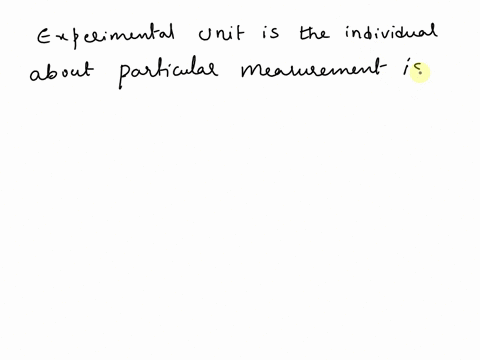 Experimental unit is the individual
about particular measurement is